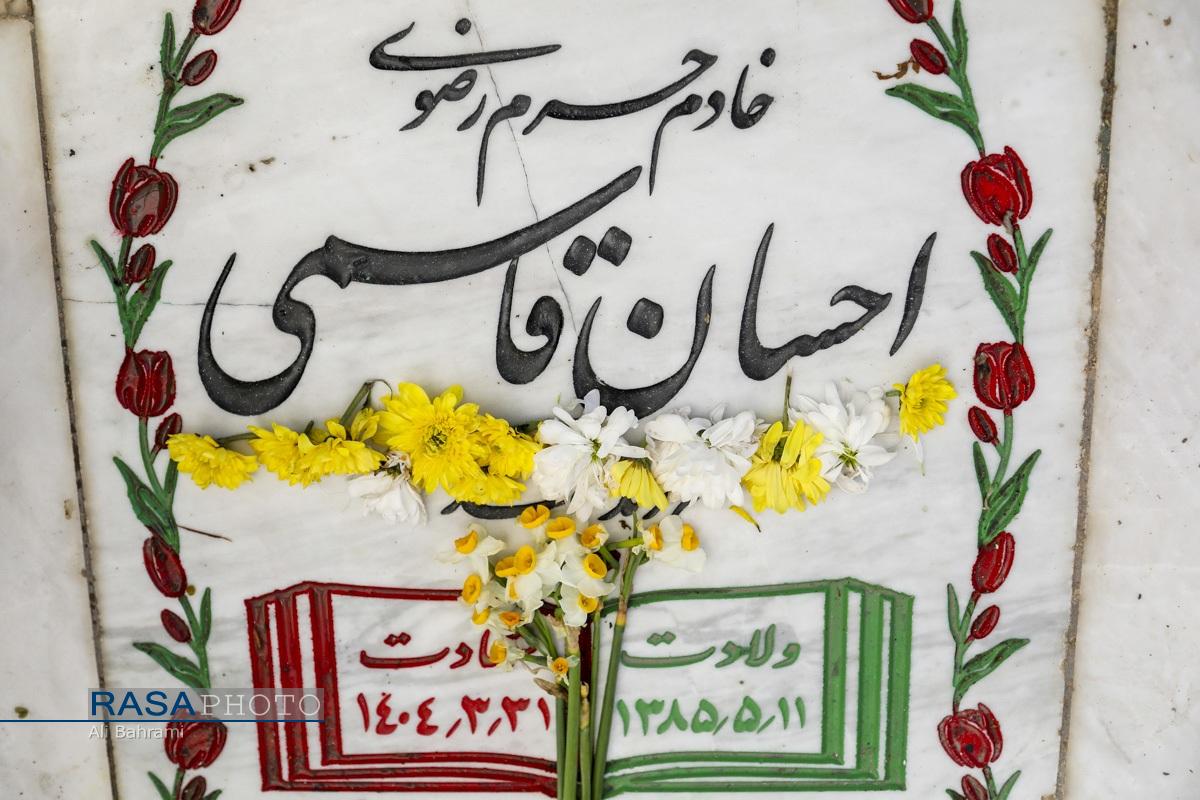 خادم حرم رضوی
احسان قاسمی
ولادت
۱۳۸۵٫۵٫۱۱
۱۴۰۴٫۳٫۳۱
RASAPHOTO
Ali Bahrami